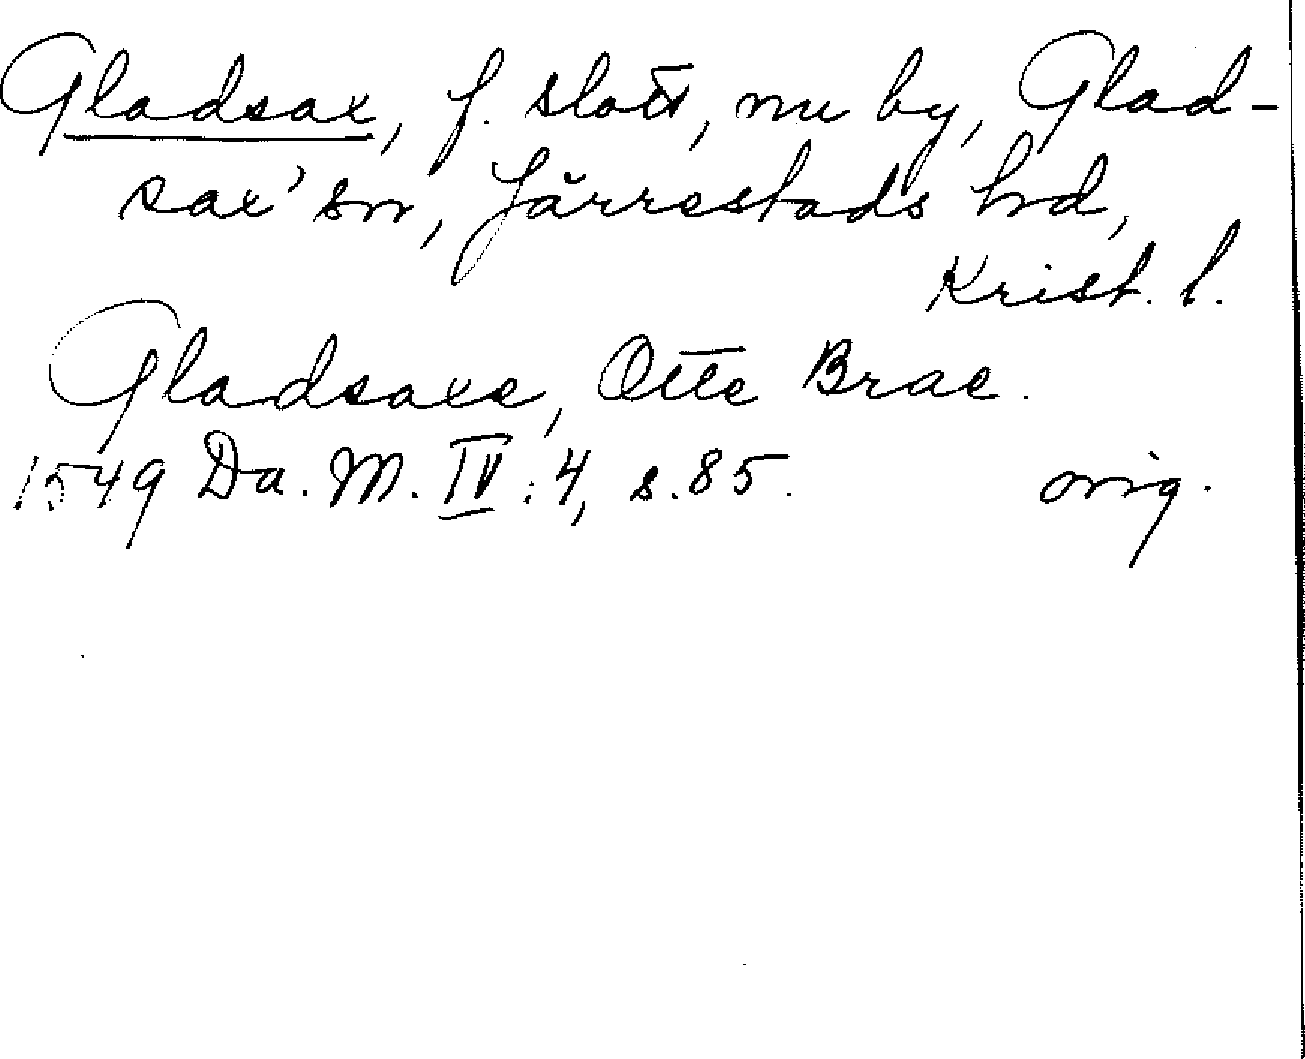 Gladsax, f. slott, nu by, Glad-
sax' sn, Järrestads hrd,
Krist. l.
Gladsaxe, Otte Brae.
1549 Da. M. IV: 4, s. 85. orig.